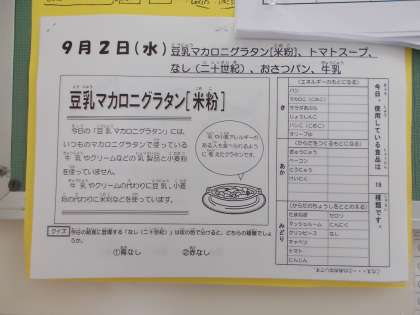 ９月２日（水） 豆乳マカロニグラタン［米粉］、トマトスープ、
なし（二十世紀）、おさつパン、牛乳
豆乳マカロニグラタン［米粉］
今日の「豆乳マカロニグラタン」には、
いつものマカロニグラタンで使っている
牛乳やクリームなどの乳製品と小麦粉
を使っていません。
牛乳やクリームの代わりに豆乳、小麦
粉の代わりに米粉などを使っています。
乳や小麦アレルギーの
ある人も食べられるよう
に考えたグラタンです。
クイズ 今日の給食に登場する「なし（二十世紀）」は皮の色で分けると、どちらの種類でしょ
うか。
①青なし ②赤なし
今日、使用している食品は 18 種類です。
き
（エネルギーのもとになる）
パン
マカロニ（こめこ）
サラダあぶら
じょうしんこ
パンこ（こめこ）
オリーブゆ
あか
（からだをつくるもとになる）
ぎゅうにゅう
ベーコン
とうにゅう
けいにく
みどり
（からだのちょうしをととのえる）
たまねぎ セロリ
マッシュルーム にんにく
グリンピース なし
キャベツ
トマト
にんじん